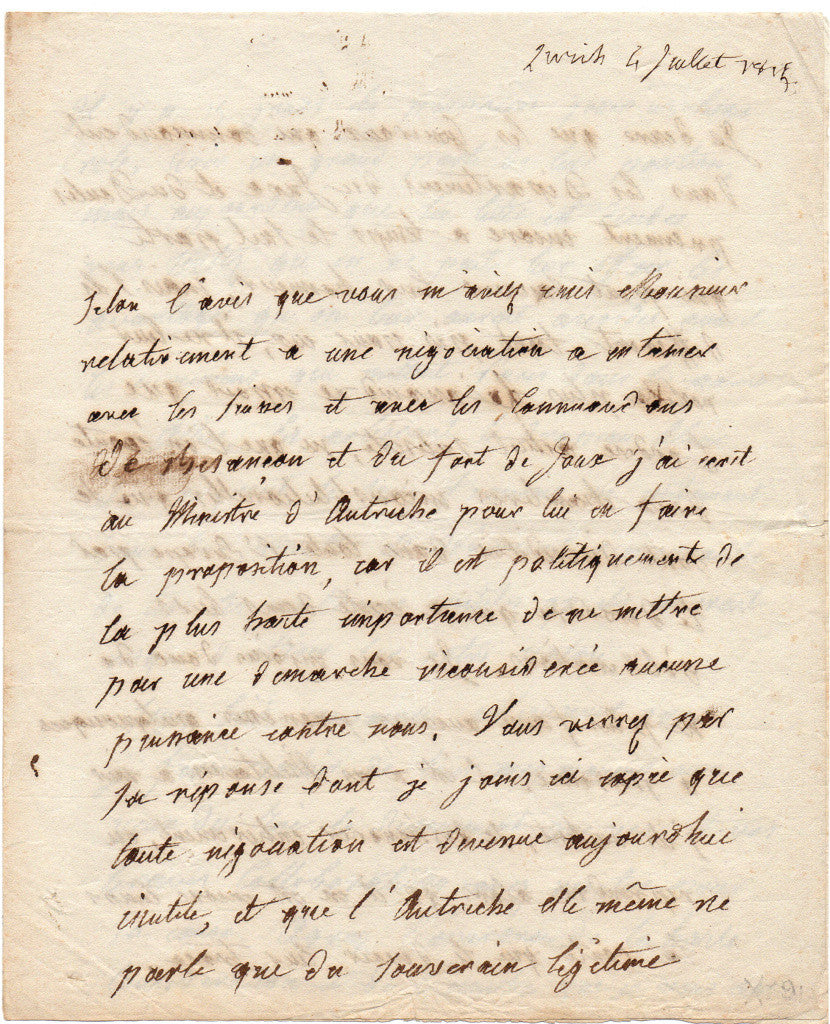 Zurich 4 Juillet 1815
Selon l'avis que vous m'aviez emis Monsieur
relativement a une négociation a entamer
avec les suisses et avec les Commandans
de Besançon et du fort de Joux j'ai ecrit
au Ministre d'Autriche pour lui en faire
la proposition, car il est politiquement de
la plus haute importance de ne mettre
par une demarche inconsiderée aucune
puissance contre nous. Vous verrez par
sa réponse dont je joins ici copie que
toute négociation est devenue aujourd'hui
inutile, et que l'Autriche elle même ne
parle que du souverain légitime